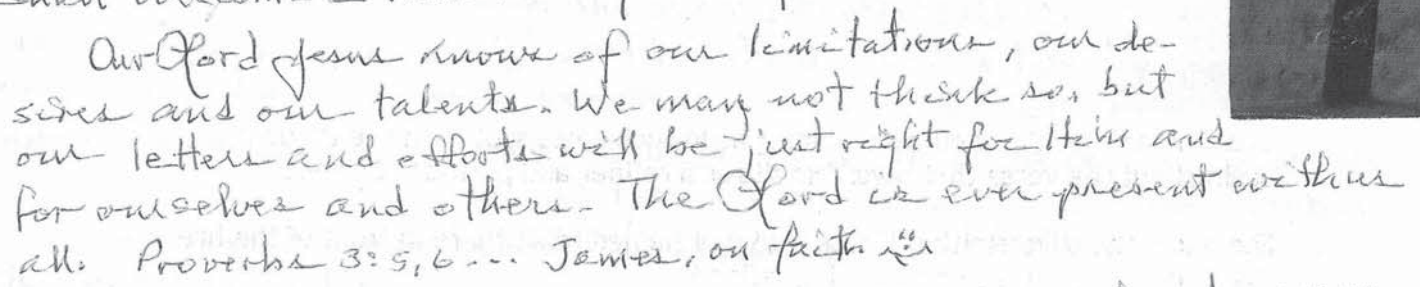 Our Lord Jesus knows of our limitations, our de-
sires and our talents. We may not think so, but
our letters and efforts will be just right for Him and
for ourselves and others. The Lord is ever present with us
all. Proverbs 3:5,6... James, on faith